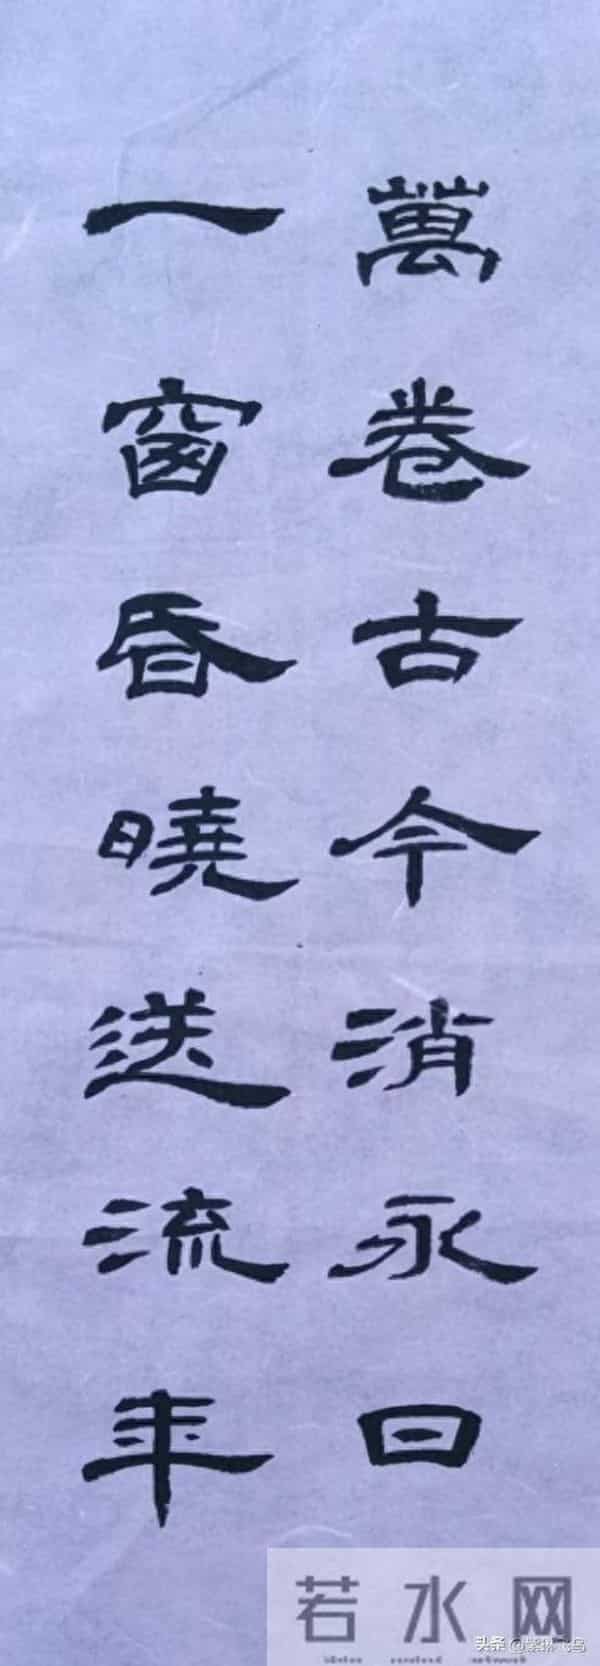 萬卷古今消永日
一窗昏曉送流年
若水网
头条